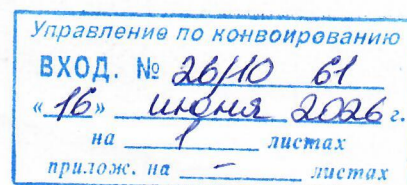 Управление по конвоированию
ВХОД. № 26/10 61
«16» июня 2026 г.
на 1 листах
прилож. на – листах